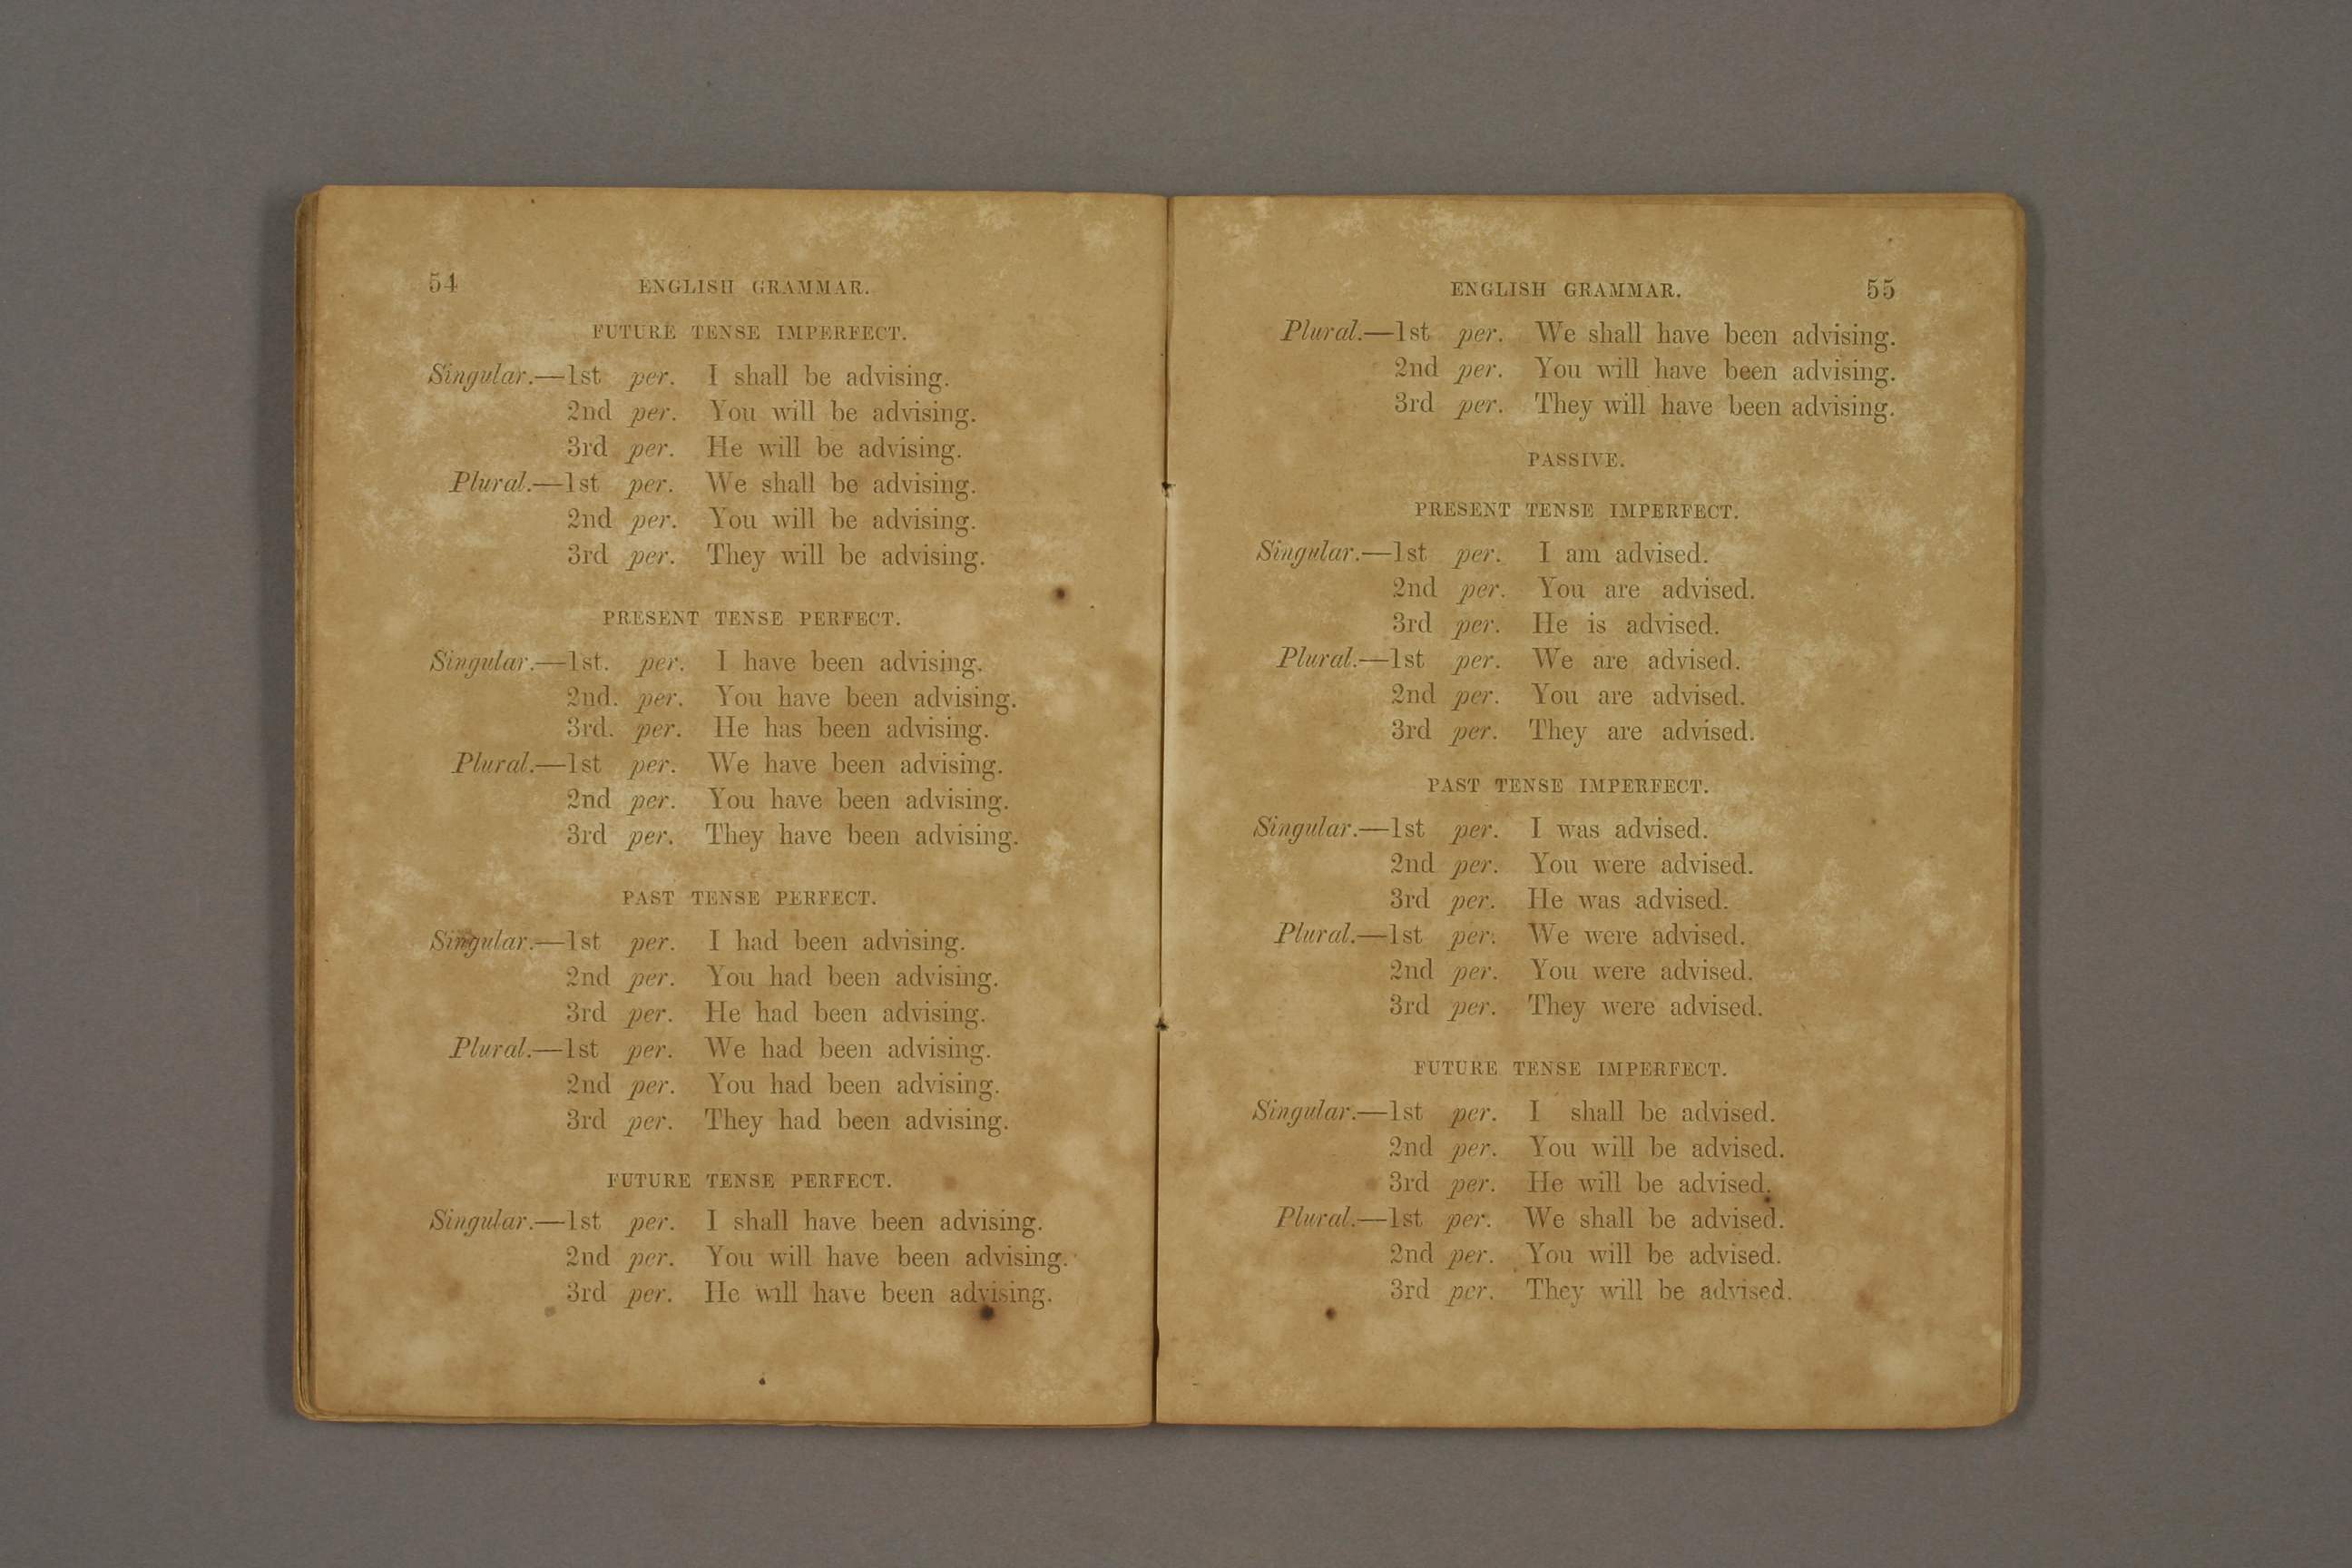 54 ENGLISH GRAMMAR.
FUTURE TENSE IMPERFECT.
Singular.—1st per. I shall be advising.
2nd per. You will be advising.
3rd per. He will be advising.
Plural.—1st per. We shall be advising.
2nd per. You will be advising.
3rd per. They will be advising.
PRESENT TENSE PERFECT.
Singular.—1st. per. I have been advising.
2nd. per. You have been advising.
3rd. per. He has been advising.
Plural.—1st per. We have been advising.
2nd per. You have been advising.
3rd per. They have been advising.
PAST TENSE PERFECT.
Singular.—1st per. I had been advising.
2nd per. You had been advising.
3rd per. He had been advising.
Plural.—1st per. We had been advising.
2nd per. You had been advising.
3rd per. They had been advising.
FUTURE TENSE PERFECT.
Singular.—1st per. I shall have been advising.
2nd per. You will have been advising.
3rd per. He will have been advising.
ENGLISH GRAMMAR. 55
Plural.—1st per. We shall have been advising.
2nd per. You will have been advising.
3rd per. They will have been advising.
PASSIVE.
PRESENT TENSE IMPERFECT.
Singular.—1st per. I am advised.
2nd per. You are advised.
3rd per. He is advised.
Plural.—1st per. We are advised.
2nd per. You are advised.
3rd per. They are advised.
PAST TENSE IMPERFECT.
Singular.—1st per. I was advised.
2nd per. You were advised.
3rd per. He was advised.
Plural.—1st per. We were advised.
2nd per. You were advised.
3rd per. They were advised.
FUTURE TENSE IMPERFECT.
Singular.—1st per. I shall be advised.
2nd per. You will be advised.
3rd per. He will be advised.
Plural.—1st per. We shall be advised.
2nd per. You will be advised.
3rd per. They will be advised.